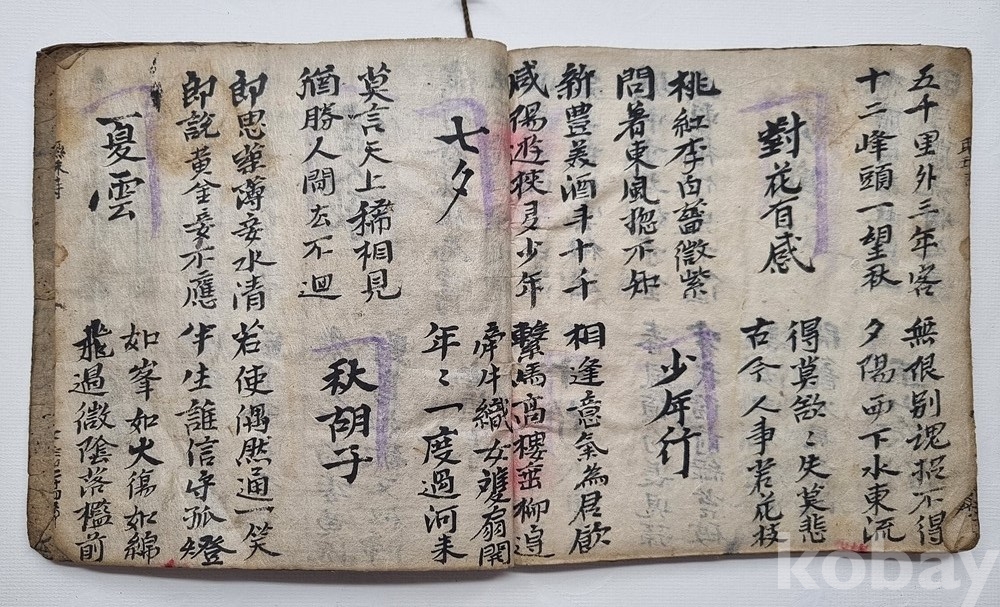 五千里外三年客
十二峰頭一望秋
無限別魂招不得
夕陽西下水東流
對花有感
得莫欲々失莫悲
古今人事若花枝
桃紅李白薔薇紫
問著東風捴不知
少年行
新豊美酒斗十千
咸陽遊俠多少年
相逢意氣為君飲
繫馬高樓垂柳邊
七夕
牽牛織女雙扇開
年々一度過河来
莫言天上稀相見
猶勝人間去不迴
秋胡子
郎思葉薄妾水清
郎說黃金妾不應
若使偶然通一笑
半生誰信守孤燈
夏雲
如峯如火復如綿
飛過微陰落檻前
kobay